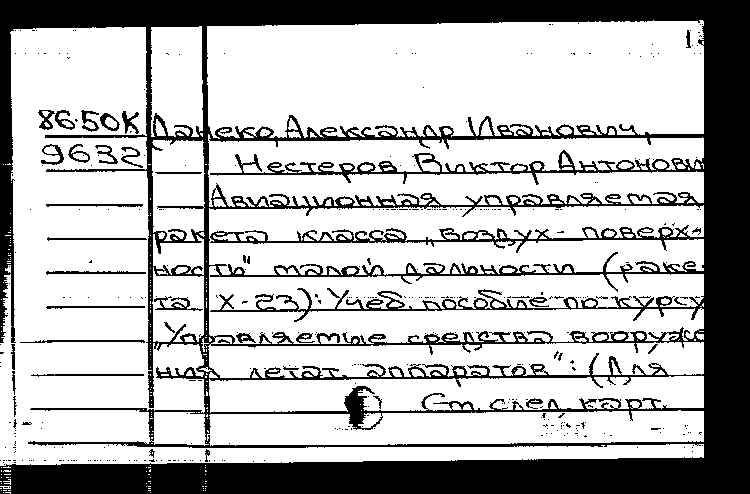 86-50К Данеко, Александр Иванович,
9632 Нестеров, Виктор Антонович
Авиационная управляемая
ракета класса „воздух- поверх-
ность" малой дальности (раке-
та Х-23): Учеб. пособие по курсу
„Управляемые средства вооруже
ния летат. аппаратов": (Для
См. след. карт.